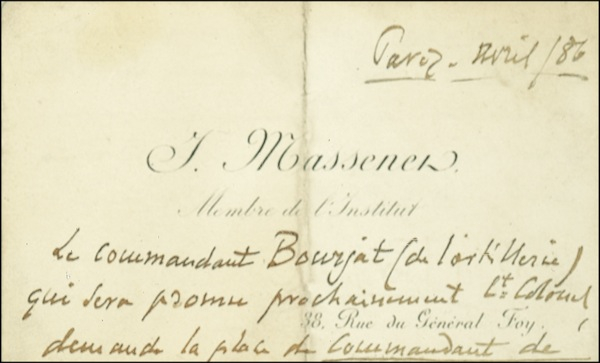 Paris. Avril /86
J. Massenet.
Membre de l'Institut
Le commandant Bourjat (de l'artillerie)
qui sera promu prochainement Lt. Colonel,
38, Rue du Général Foy.
demande la place de commandant de